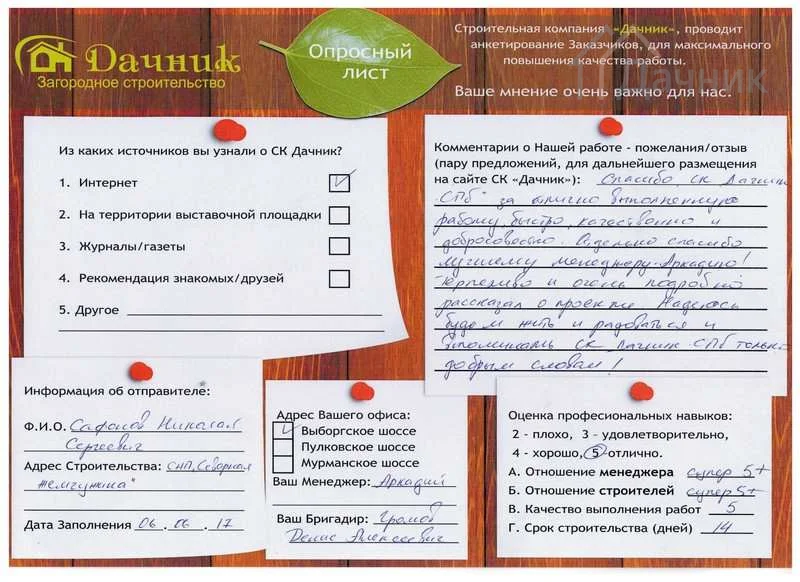 Дачник
Загородное строительство
Опросный
лист
Строительная компания «Дачник», проводит
анкетирование Заказчиков, для максимального
повышения качества работы.
Ваше мнение очень важно для нас.
Дачник
Из каких источников вы узнали о СК Дачник?
1. Интернет
2. На территории выставочной площадки
3. Журналы/газеты
4. Рекомендация знакомых/друзей
5. Другое
Комментарии о Нашей работе - пожелания/отзыв
(пару предложений, для дальнейшего размещения
на сайте СК «Дачник»): Спасибо, СК Дачник
СПб" за отлично выполненную
работу, быстро, качественно и
добросовестно. Отдельно спасибо
лучшему менеджеру-Аркадию!
Терпеливо и очень подробно
рассказал о проекте. Надеюсь
будем жить и радоваться и
вспоминать СК Дачник-СПб только
добрым словом!
Информация об отправителе:
Ф.И.О. Сафонов Николай
Сергеевич
Адрес Строительства: СНП, Северная
жемчужина"
Дата Заполнения 06.06.17
Адрес Вашего офиса:
Выборгское шоссе
Пулковское шоссе
Мурманское шоссе
Ваш Менеджер: Аркадий
Ваш Бригадир: Громов
Денис Алексеевич
Оценка професиональных навыков:
2 - плохо, 3 - удовлетворительно,
4 - хорошо, 5 отлично.
А. Отношение менеджера супер 5+
Б. Отношение строителей супер 5+
В. Качество выполнения работ 5
Г. Срок строительства (дней) 14